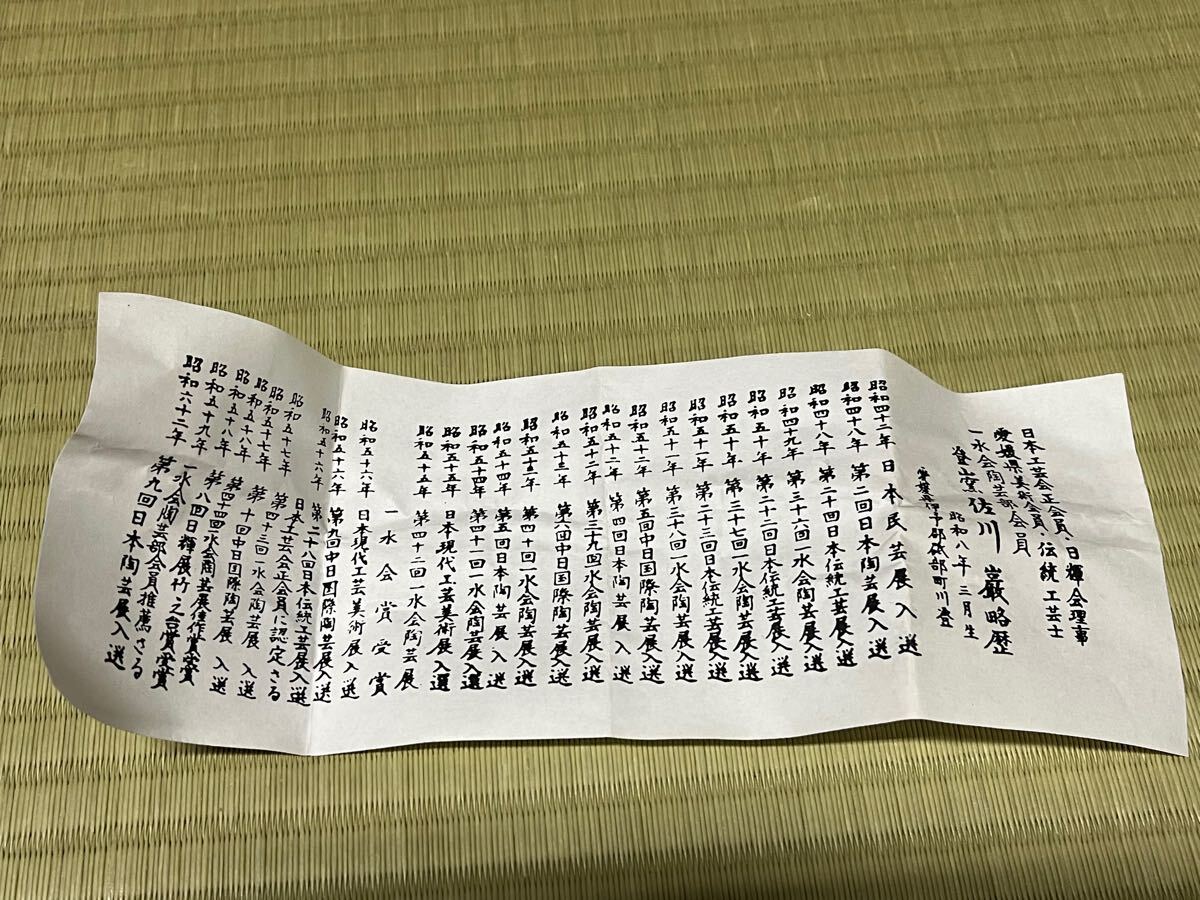 日本工芸会正会員・日輝会理事
愛媛県美術会員・伝統工芸士
一水会陶芸部会員
佐川 巖略歴
昭和八年三月生
愛媛県伊予郡砥部町川登
昭和四十二年 日本民芸展入選
昭和四十八年 第二回日本陶芸展入選
昭和四十八年 第二十回日本伝統工芸展入選
昭和四十九年 第三十六回一水会陶芸展入選
昭和五十年 第二十二回日本伝統工芸展入選
昭和五十年 第三十七回一水会陶芸展入選
昭和五十一年 第二十三回日本伝統工芸展入選
昭和五十一年 第三十八回一水会陶芸展入選
昭和五十二年 第五回中日国際陶芸展入選
昭和五十二年 第四回日本陶芸展入選
昭和五十二年 第三十九回一水会陶芸展入選
昭和五十三年 第六回中日国際陶芸展入選
昭和五十三年 第四十回一水会陶芸展入選
昭和五十四年 第五回日本陶芸展入選
昭和五十四年 第四十一回一水会陶芸展入選
昭和五十五年 日本現代工芸美術展入選
昭和五十五年 第四十二回一水会陶芸展
一水会賞受賞
昭和五十六年 日本現代工芸美術展入選
昭和五十六年 第九回中日国際陶芸展入選
昭和五十六年 第二十八回日本伝統工芸展入選
昭和五十七年 日本工芸会正会員に認定さる
昭和五十七年 第四十三回一水会陶芸展入選
昭和五十八年 第十回中日国際陶芸展入選
昭和五十八年 第四十四回一水会陶芸展佳作賞受賞
昭和五十九年 第八回日輝展竹之台賞受賞
一水会陶芸部会員推薦さる
昭和六十二年 第九回日本陶芸展入選